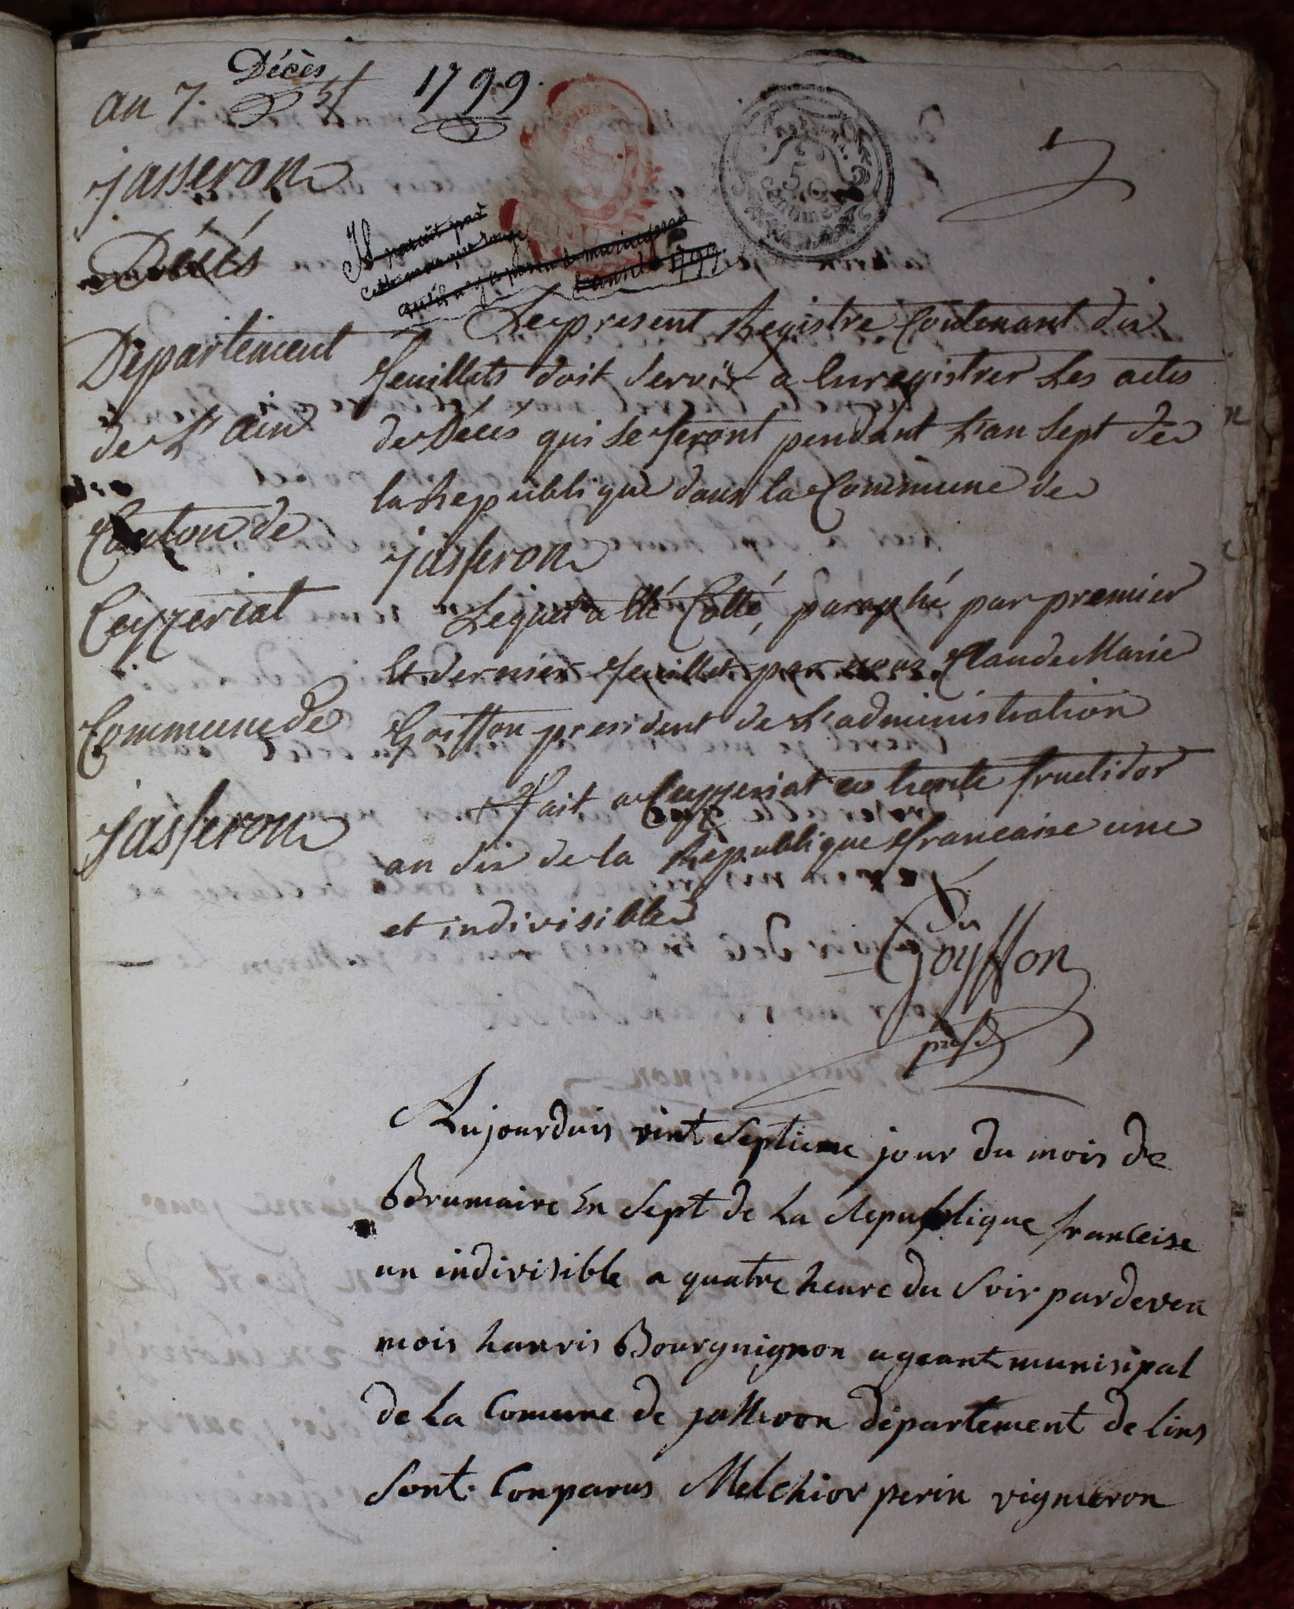 Décès
an 7. 1799.
jasseron
Décés
Il parait par
cette marque rouge
qu'il n'y a point de mariages
l'année 1799
Departement
de L'ain
Canton de
Ceyzeriat
Commune de
jasseron
Le present Registre Contenant dix
feuillets doit servir a Enregistrer Les actes
de Décés qui se feront pendant L'an sept de
la Republique dans la Commune de
jasseron
Lequel a été Cotté, paraphé par premier
Et dernier feuillet par nous Claude Marie
Goiffon president de L'administration
Fait a Ceyzeriat ce trente fructidor
an six de la Republique francaise une
et indivisible
Goyffon
presdt
Aujourduis vint septieme jour du mois de
Brumaire En sept de La Republique franceise
un indivisible a quatre heure du Soir pardeven
mois hanris Bourguignon ageant munisipal
de La Comune de jasseron département de Lins
Sont Conparus Melchior perin vigneron